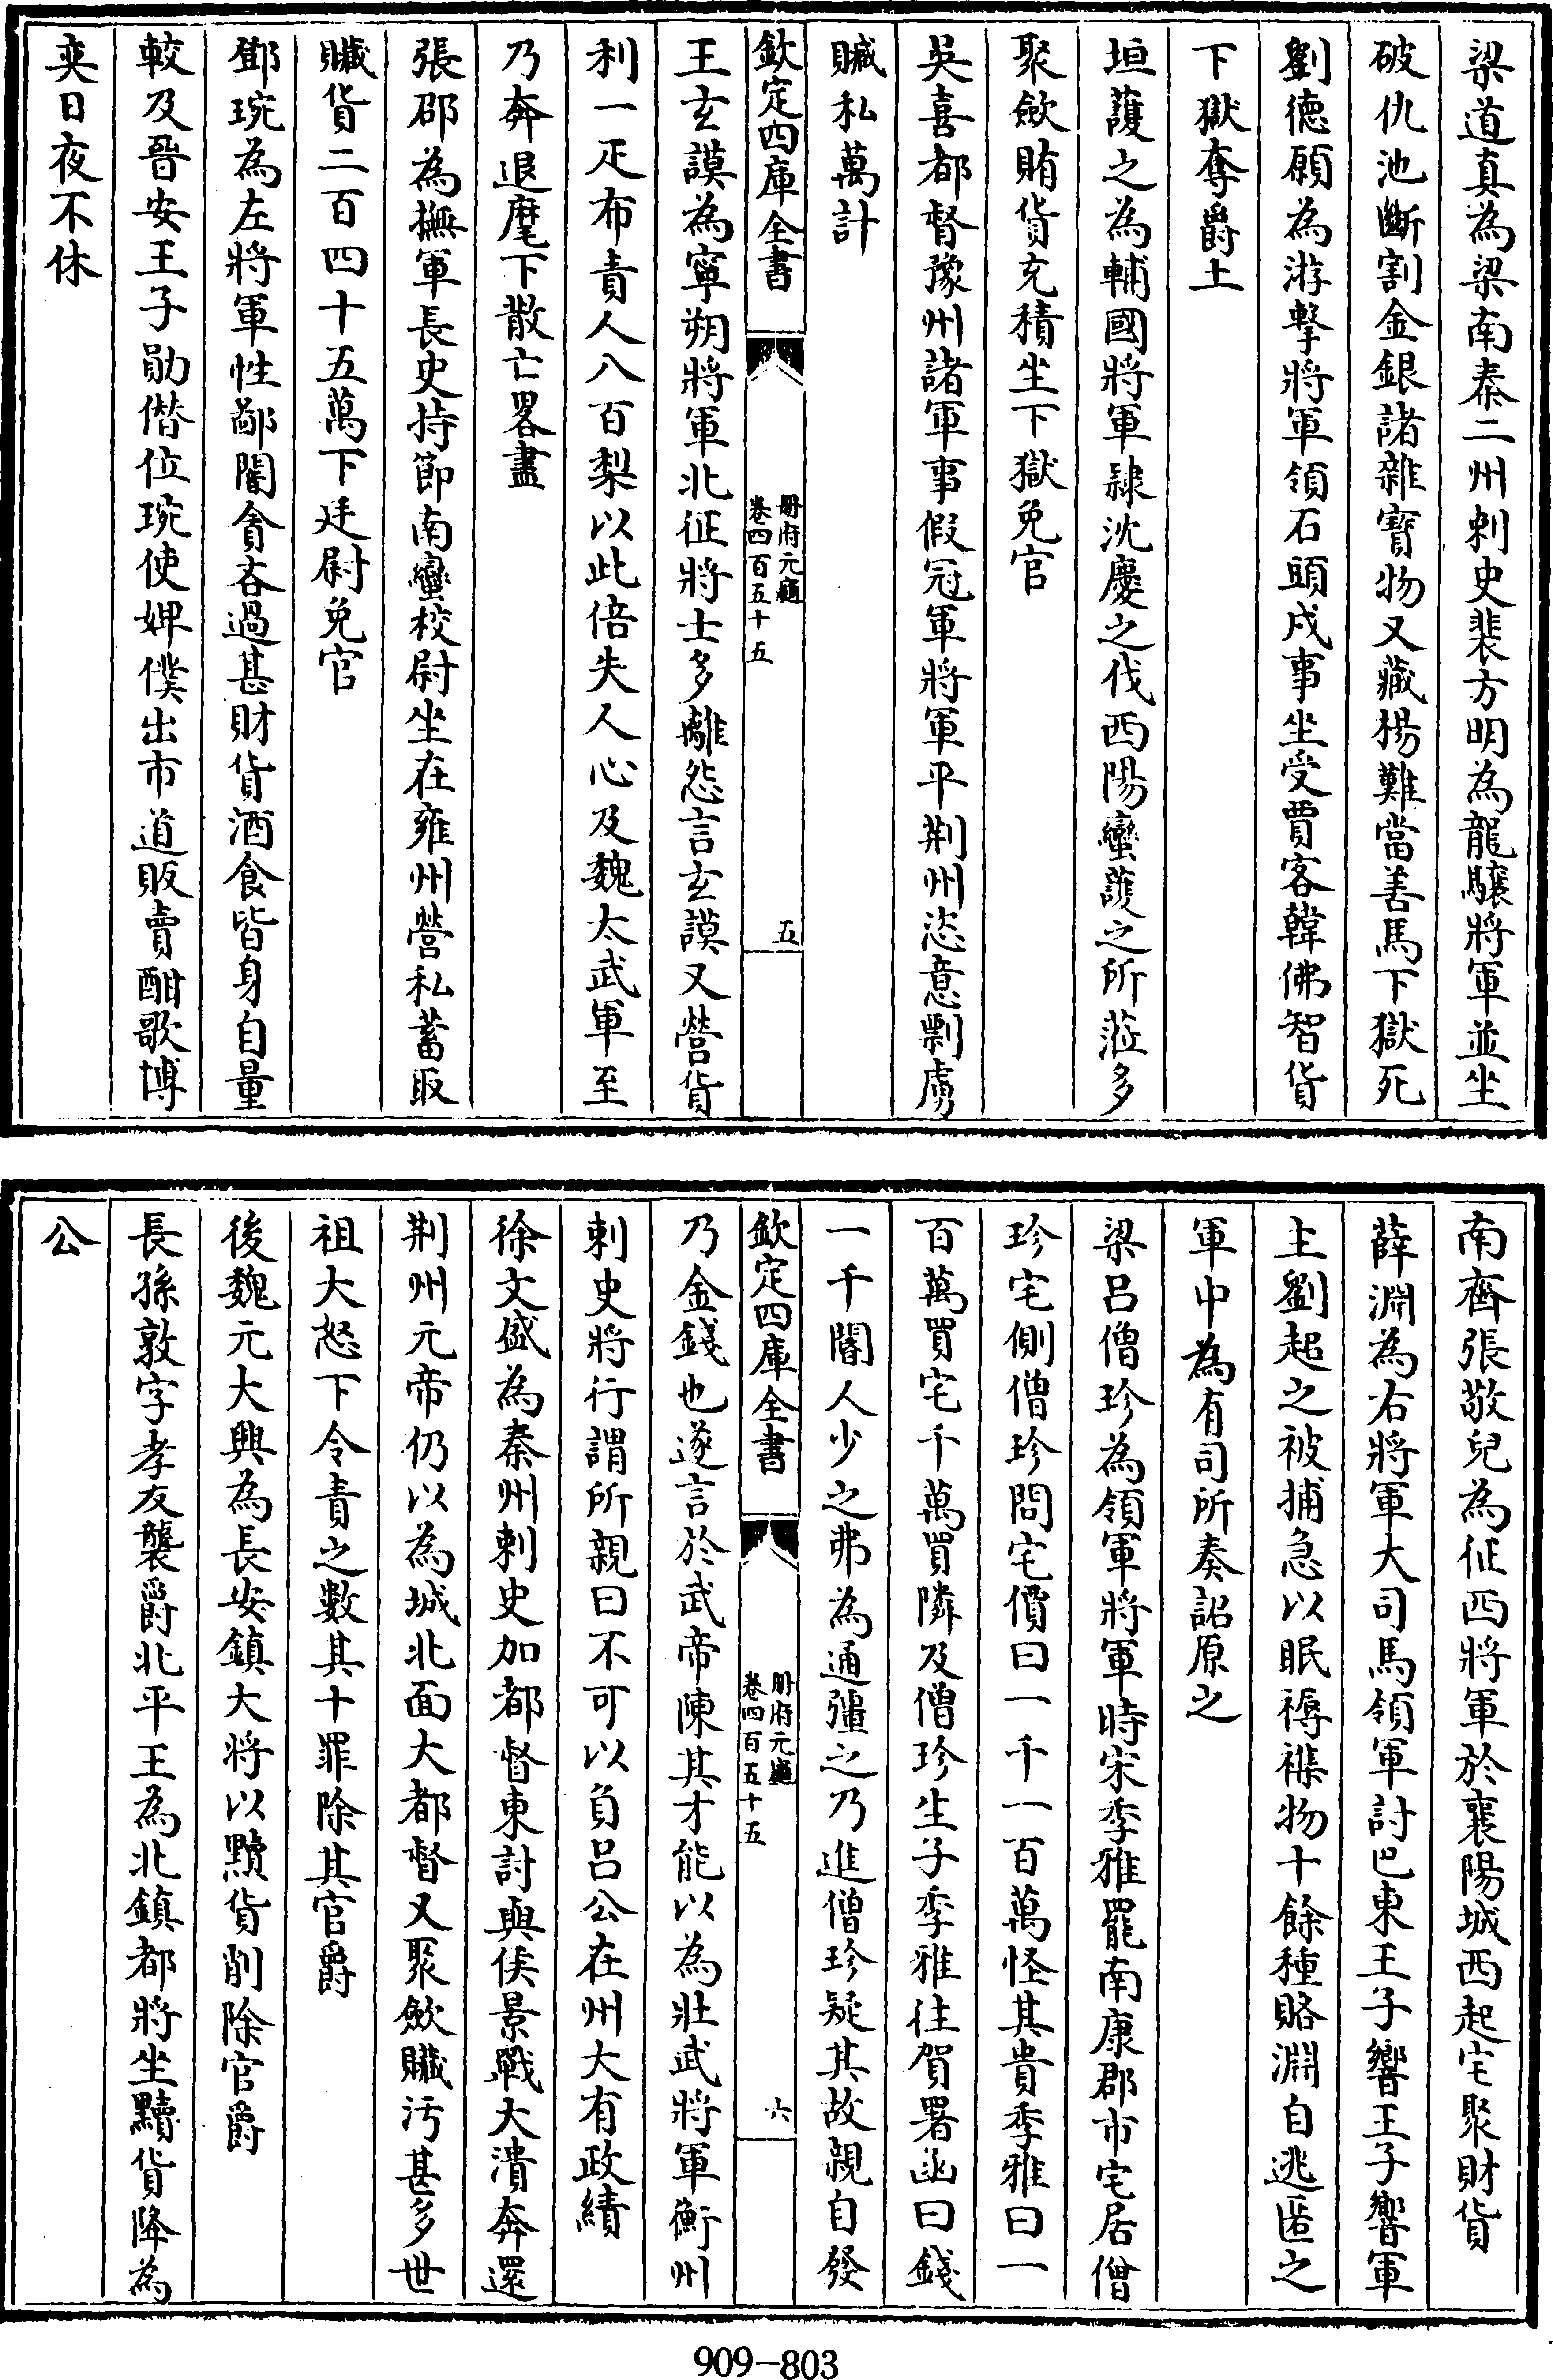 梁道真為梁南泰二州刺史裴方明為龍驤將軍並坐
破仇池斷割金銀諸雜寳物又藏楊難當善馬下獄死
劉德願為游擊將軍領石頭戍事坐受賈客韓佛智貨
下獄奪爵土
垣護之為輔國將軍隷沈慶之伐西陽蠻護之所蒞多
聚歛賄貨充積坐下獄免官
吳喜都督豫州諸軍事假冠軍將軍平荆州恣意剽虜
贓私萬計
欽定四庫全書
册府元龜
卷四百五十五
五
王玄謨為寧朔將軍北征將士多離怨言玄謨又營貨
利一疋布責人八百梨以此倍失人心及魏太武軍至
乃奔退麾下散亡畧盡
張邵為撫軍長史持節南蠻校尉坐在雍州營私蓄取
贓貨二百四十五萬下廷尉免官
鄧琬為左將軍性鄙闇貪吝過甚財貨酒食皆身自量
較及晉安王子勛僭位琬使婢僕出市道販賣酣歌博
奕日夜不休
南齊張敬兒為征西將軍於襄陽城西起宅聚財貨
薛淵為右將軍大司馬領軍討巴東王子響王子響軍
主劉起之被捕急以眠褥襍物十餘種賂淵自逃匿之
軍中為有司所奏詔原之
梁吕僧珍為領軍將軍時宋季雅罷南康郡市宅居僧
珍宅側僧珍問宅價曰一千一百萬怪其貴季雅曰一
百萬買宅千萬買隣及僧珍生子季雅往賀署函曰錢
一千閽人少之弗為通彊之乃進僧珍疑其故親自發
欽定四庫全書
册府元龜
卷四百五十五
六
乃金錢也遂言於武帝陳其才能以為壯武將軍衡州
刺史將行謂所親曰不可以負吕公在州大有政績
徐文盛為秦州刺史加都督東討與侯景戰大潰奔還
荆州元帝仍以為城北面大都督又聚歛贓汚甚多世
祖大怒下令責之數其十罪除其官爵
後魏元大興為長安鎮大將以黷貨削除官爵
長孫敦字孝友襲爵北平王為北鎮都將坐黷貨降為
公
909-803